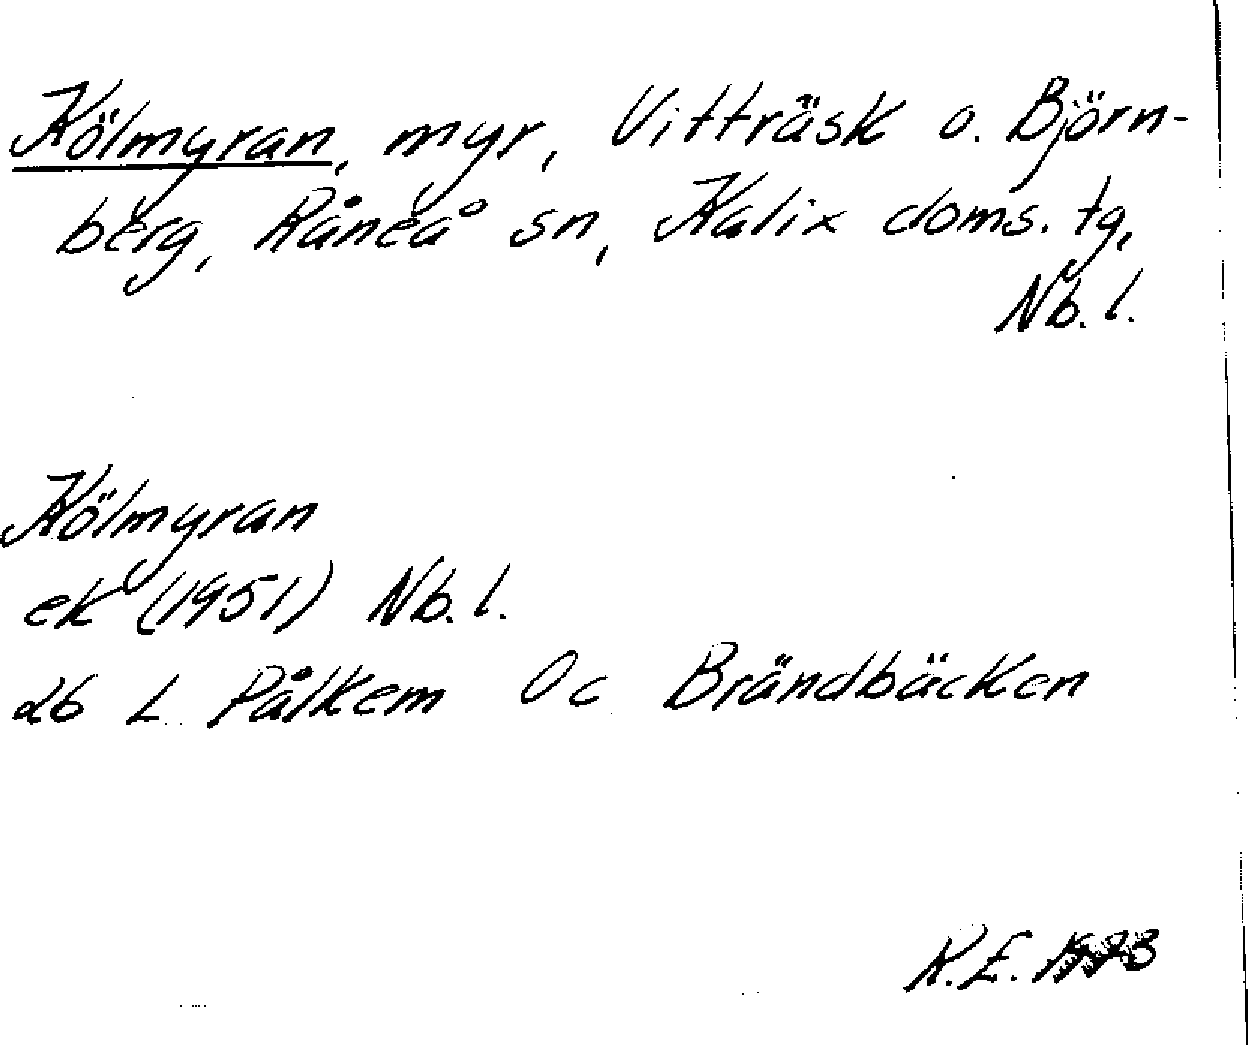 Kölmyran, myr, Vitträsk o. Björn-
berg, Råneå sn, Kalix doms. tg,
Nb. l.
Kölmyran
ek (1951) Nb. l.
26 L Pålkem Oc Brändbäcken
K.E. 1973